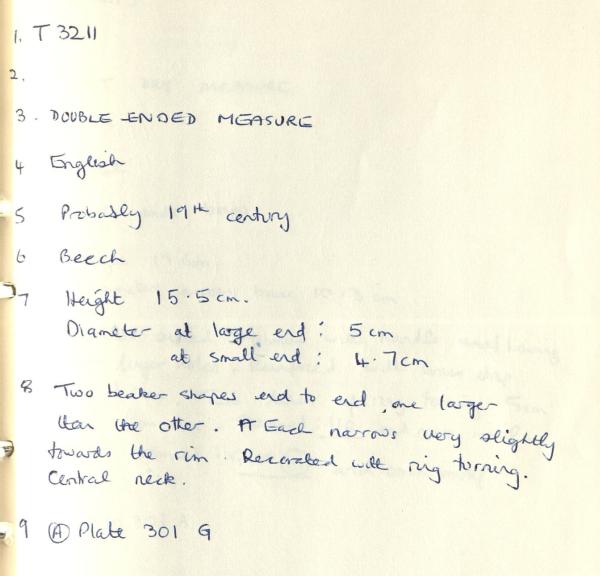 1. T 3211
2.
3. DOUBLE-ENDED MEASURE
4 English
5 Probably 19th century
6 Beech
7 Height 15.5 cm.
Diameter at large end: 5 cm
at small end: 4.7cm
8 Two beaker shapes end to end, one larger
than the other. Each narrows very slightly
towards the rim. Decorated with ring turning.
Central neck.
9 (A) Plate 301 G